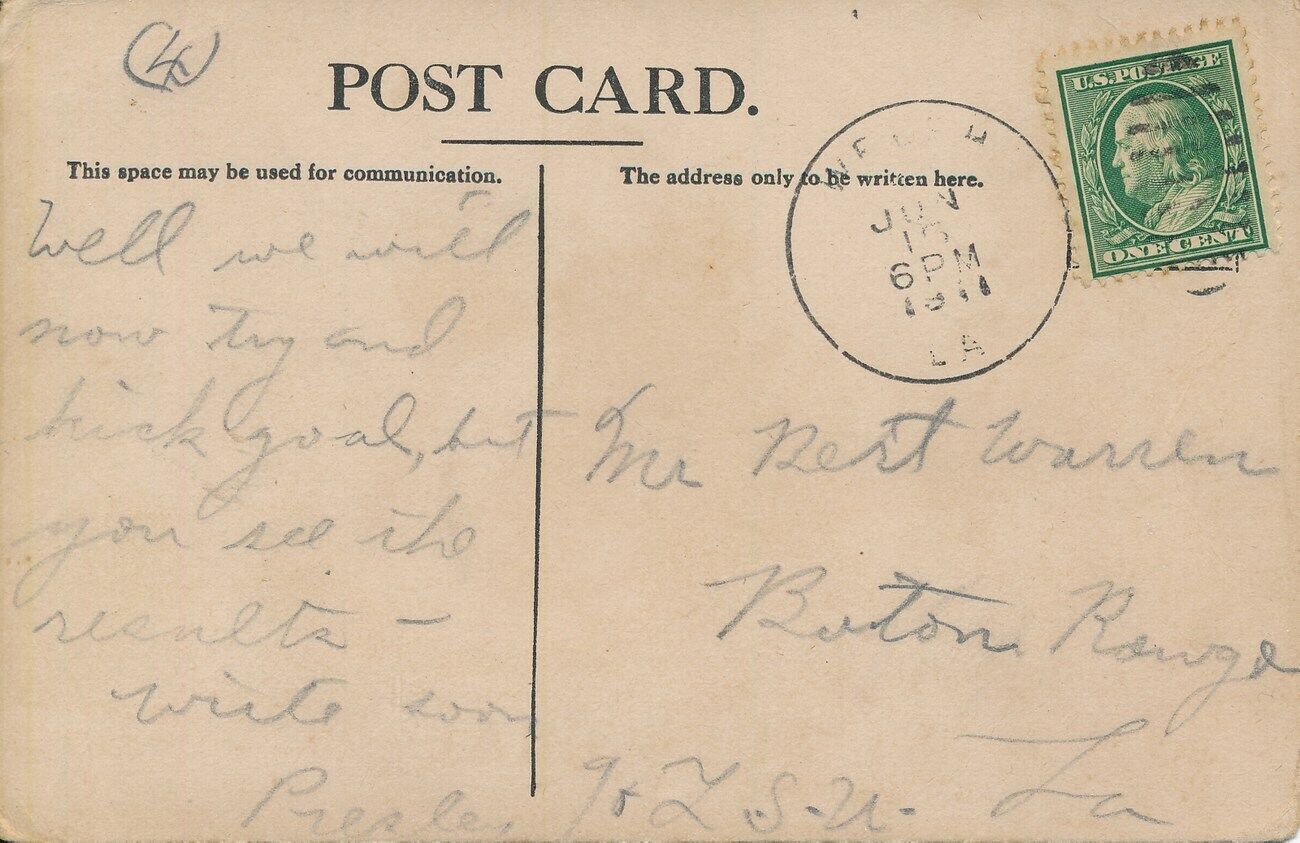 (4)
POST CARD.
This space may be used for communication.
The address only to be written here.
U.S. POSTAGE
ONE CENT
WELSH
JUN
6 PM
1911
LA
Well we will
now try and
kick goal, but
you see the
results –
write soon
Presley
Mr Bert Warren
Baton Rouge
La
L.S.U.